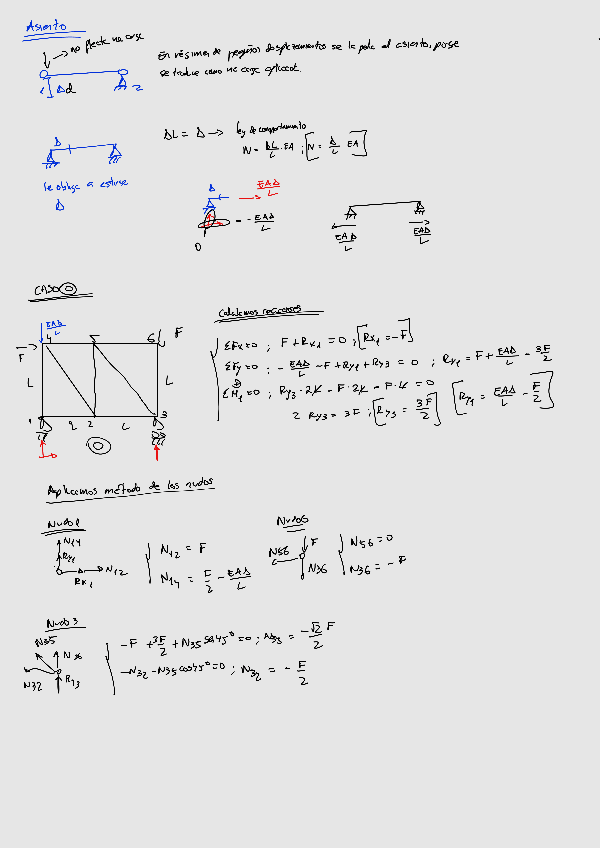 Asiento
→ no afecta una carga
En régimen de pequeños desplazamientos se le pide al asiento, porque
se traduce como una carga aplicada.
Δd
1 2
ΔL = Δ → ley de comportamiento
N = ΔL/L · EA ; [N = Δ/L EA]
Δ
Se obliga a estirarse
Δ
Δ
EAΔ/L
= - EAΔ/L
0
EAΔ/L EAΔ/L
CASO 0
Calculamos reacciones
EAΔ/L
F 4 5 6 F
L L
1 L 2 L 3
0
ΣFx=0 ; F + Rx1 = 0 ; [Rx1 = -F]
ΣFy=0 : - EAΔ/L - F + Ry1 + Ry3 = 0 ; Ry1 = F + EAΔ/L - 3F/2
ΣM1=0 ; Ry3 · 2L - F · 2L - F · L = 0
2 Ry3 = 3F ; [Ry3 = 3F/2] [Ry1 = EAΔ/L - F/2]
Aplicamos método de los nudos
Nudo 1
N14
Ry1
Rx1 N12
N12 = F
N14 = F/2 - EAΔ/L
Nudo 6
N56 F
N36
N56 = 0
N36 = - F
Nudo 3
N35
N36
N32 Ry3
-F + 3F/2 + N35 sen45° = 0 ; N35 = -√2/2 F
-N32 - N35 cos45° = 0 ; N32 = - F/2